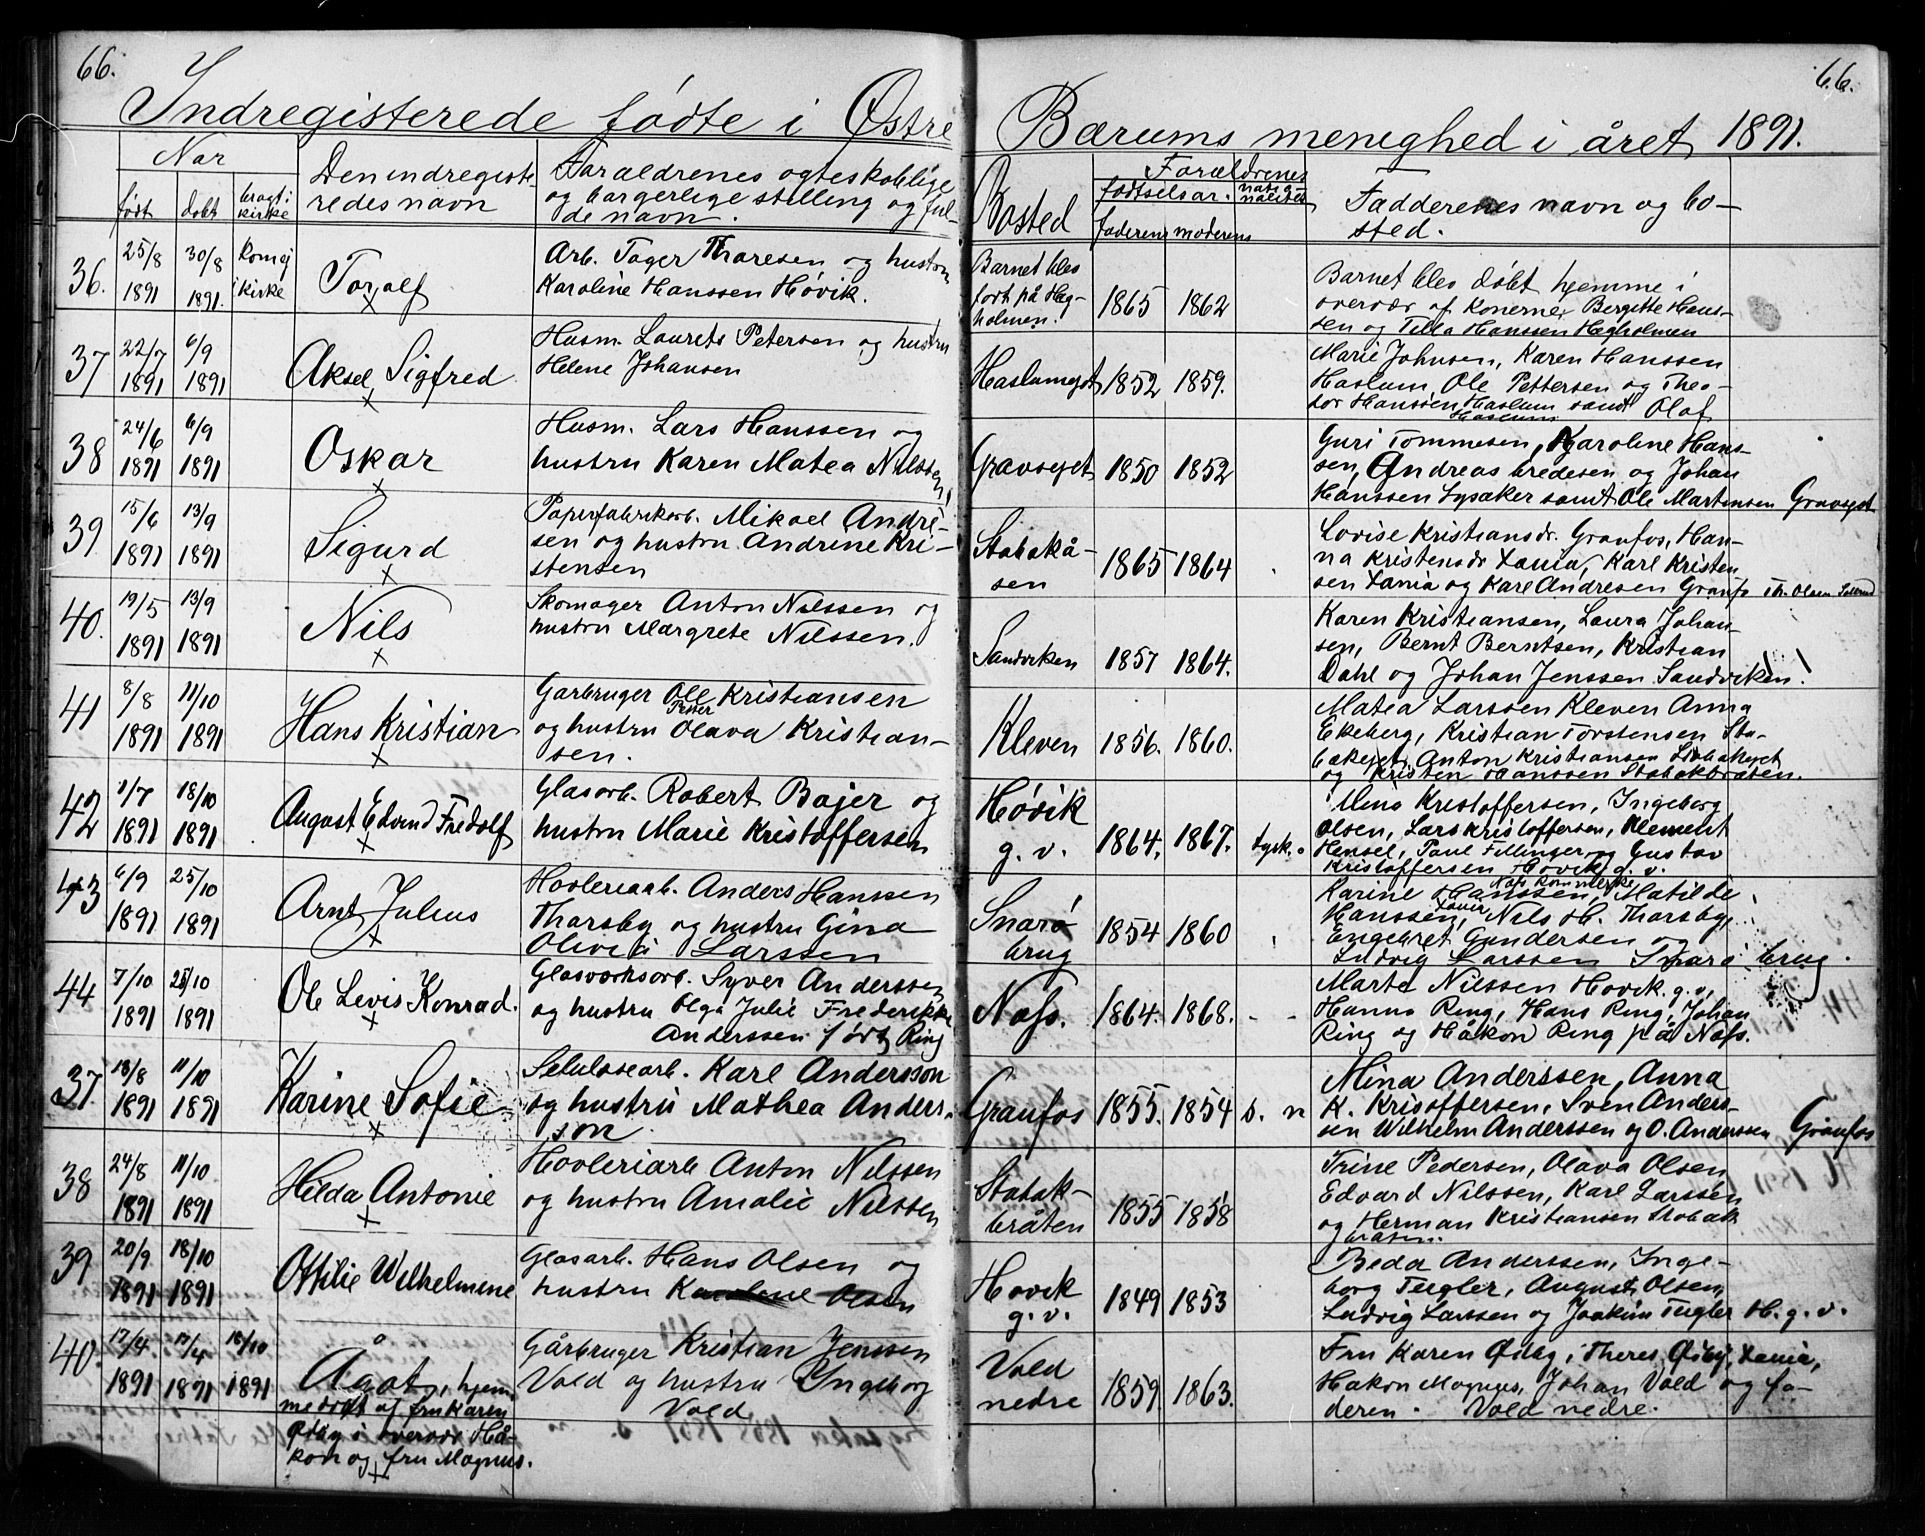 66.
66.
Indregisterede fødte i Østre Bærums menighed i året 1891.
Når
født
døbt
bragt i
kirke
Den indregiste-
redes navn
Forældrenes ægteskablige
og borgerlige stilling og ful-
de navn.
Bosted
Forældrenes
fødselsår.
faderens moderens
Fadderenes navn og bo-
sted.
36. 25/8 1891 30/8 1891. kom ej i kirke
Toralf
Arb. Tager Tharesen og hustru
Karoline Hanssen Høvik.
Barnet blev
født på Heg-
holmen.
1865 1862
Barnet blev døbt hjemme i
overvær af konerne, Bergitte Hans-
sen og Tilla Hanssen Hegholmen
37 22/7 1891 6/9 1891
Aksel Sigfred
Husm. Laurets Petersen og hustru
Helene Johansen
Haslumejet
1852 1859.
Marie Johnsen, Karen Hanssen
Haslum, Ole Pettersen og Theo-
dor Hanssen Haslum samt Olaf
Haslum
38 24/6 1891 6/9 1891
Oskar
Husm. Lars Hanssen og
hustru Karen Matea Nilssen
Gravsejet
1850 1852
Guri Tommesen, Karoline Hans-
sen, Andreas bredesen og Johan
Hanssen Lysaker samt Ole Martensen Gravsejet
39 15/6 1891 13/9 1891
Sigurd
Paperfabrikarb. Mikael Andre-
sen og hustru Andrine Kri-
stensen
Stabekå-
sen
1865 1864
Lovise Kristiansdr. Granfos, Han-
na Kristensdr Xania, Karl Kristen
sen Xania og Karl Andresen Granfo
40. 19/5 1891 13/9 1891
Nils
Skomager Anton Nilssen og
hustru Margrete Nilssen.
Sandviken
1857 1864.
Karen Kristiansen, Laura Johan-
sen, Bernt Berntsen, Kristian
Dahl og Johan Jenssen Sandviken!
41 8/8 1891 11/10 1891
Hans Kristian
Garbruger Ole Kristiansen
og hustru Petter Olava Kristian-
sen.
Kleven
1856. 1860.
Matea Larssen Kleven Anna
Ekeberg, Kristian Torstensen Sta-
bekejet, Anton Kristiansen Stabekejet
og Kristen Hanssen Stabekbråten.
42 1/7 1891 18/10 1891
August Edvind Fredolf
Glasarb. Robert Bajer og
hustru Marie Kristoffersen
Høvik
g. v.
1864. 1867. tysk.
Mina Kristoffersen, Ingeborg
Olsen, Lars Kristoffersen, Klement
Hensel, Paul Fellinger og Gustav
Kristoffersen Høvik g. v.
43 6/9 1891 25/10 1891
Arnt Julius
Høvleriarb. Anders Hanssen
Tharsby og hustru Gina
Olivia Larssen
Snarø
brug
1854 1860
Karine Hanssen, Matilde
Hanssen, Nils H. Tharsby,
Engebret Gundersen og
Ludvig Larssen Snarø brug.
44 7/10 1891 25/10 1891
Ole Levis Konrad.
Glasværksarb. Syver Anderssen
og hustru Olga Julie Frederikke
Anderssen født Ring
Næss.
1864. 1868. - -
Marte Nilssen Høvik. g. v,
Hanna Ring, Hans Ring, Johan
Ring og Håkon Ring på Næss.
37 18/8 1891 11/10 1891
Karine Sofie
Selulosearb. Karl Andersson
og hustru Mathea Anders-
son
Granfos
1855. 1854 s. n
Mina Anderssen, Anna
K. Kristoffersen, Sven Anders-
sen Wilhelm Anderssen og O. Anderssen Granfos
38 24/8 1891 11/10 1891
Hilda Antonie
Høvleriarb Anton Nilssen
og hustru Amalie Nilssen
Stabæk-
bråten
1855 1858
Trine Pedersen, Olava Olsen
Edvard Nilssen, Karl Larssen
og Herman Kristiansen Stabæk
bråten.
39 20/9 1891 18/10 1891
Ottilie Wilhelmine
Glasarb. Hans Olsen og
hustru Karoline Olsen
Høvik
g. v.
1849 1853
Beda Anderssen, Inge-
borg Teigler, August Olsen
Ludvig Larssen og Joakim Teigler H. g. v.
40. 17/4. 1891 17/4 1891 18/10 1891
Ågot, hjem
medøbt af fru Karen
Østby i overvær Hå-
kon og fru Magnus.
Gårbruger Kristian Jenssen
Vold og hustru Ingeborg
Vold
Vold
nedre
1859 1863.
Fru Karen Østby, Theres Østby, Xania,
Hakon Magnus, Johan Vold og fa-
deren. Vold nedre.